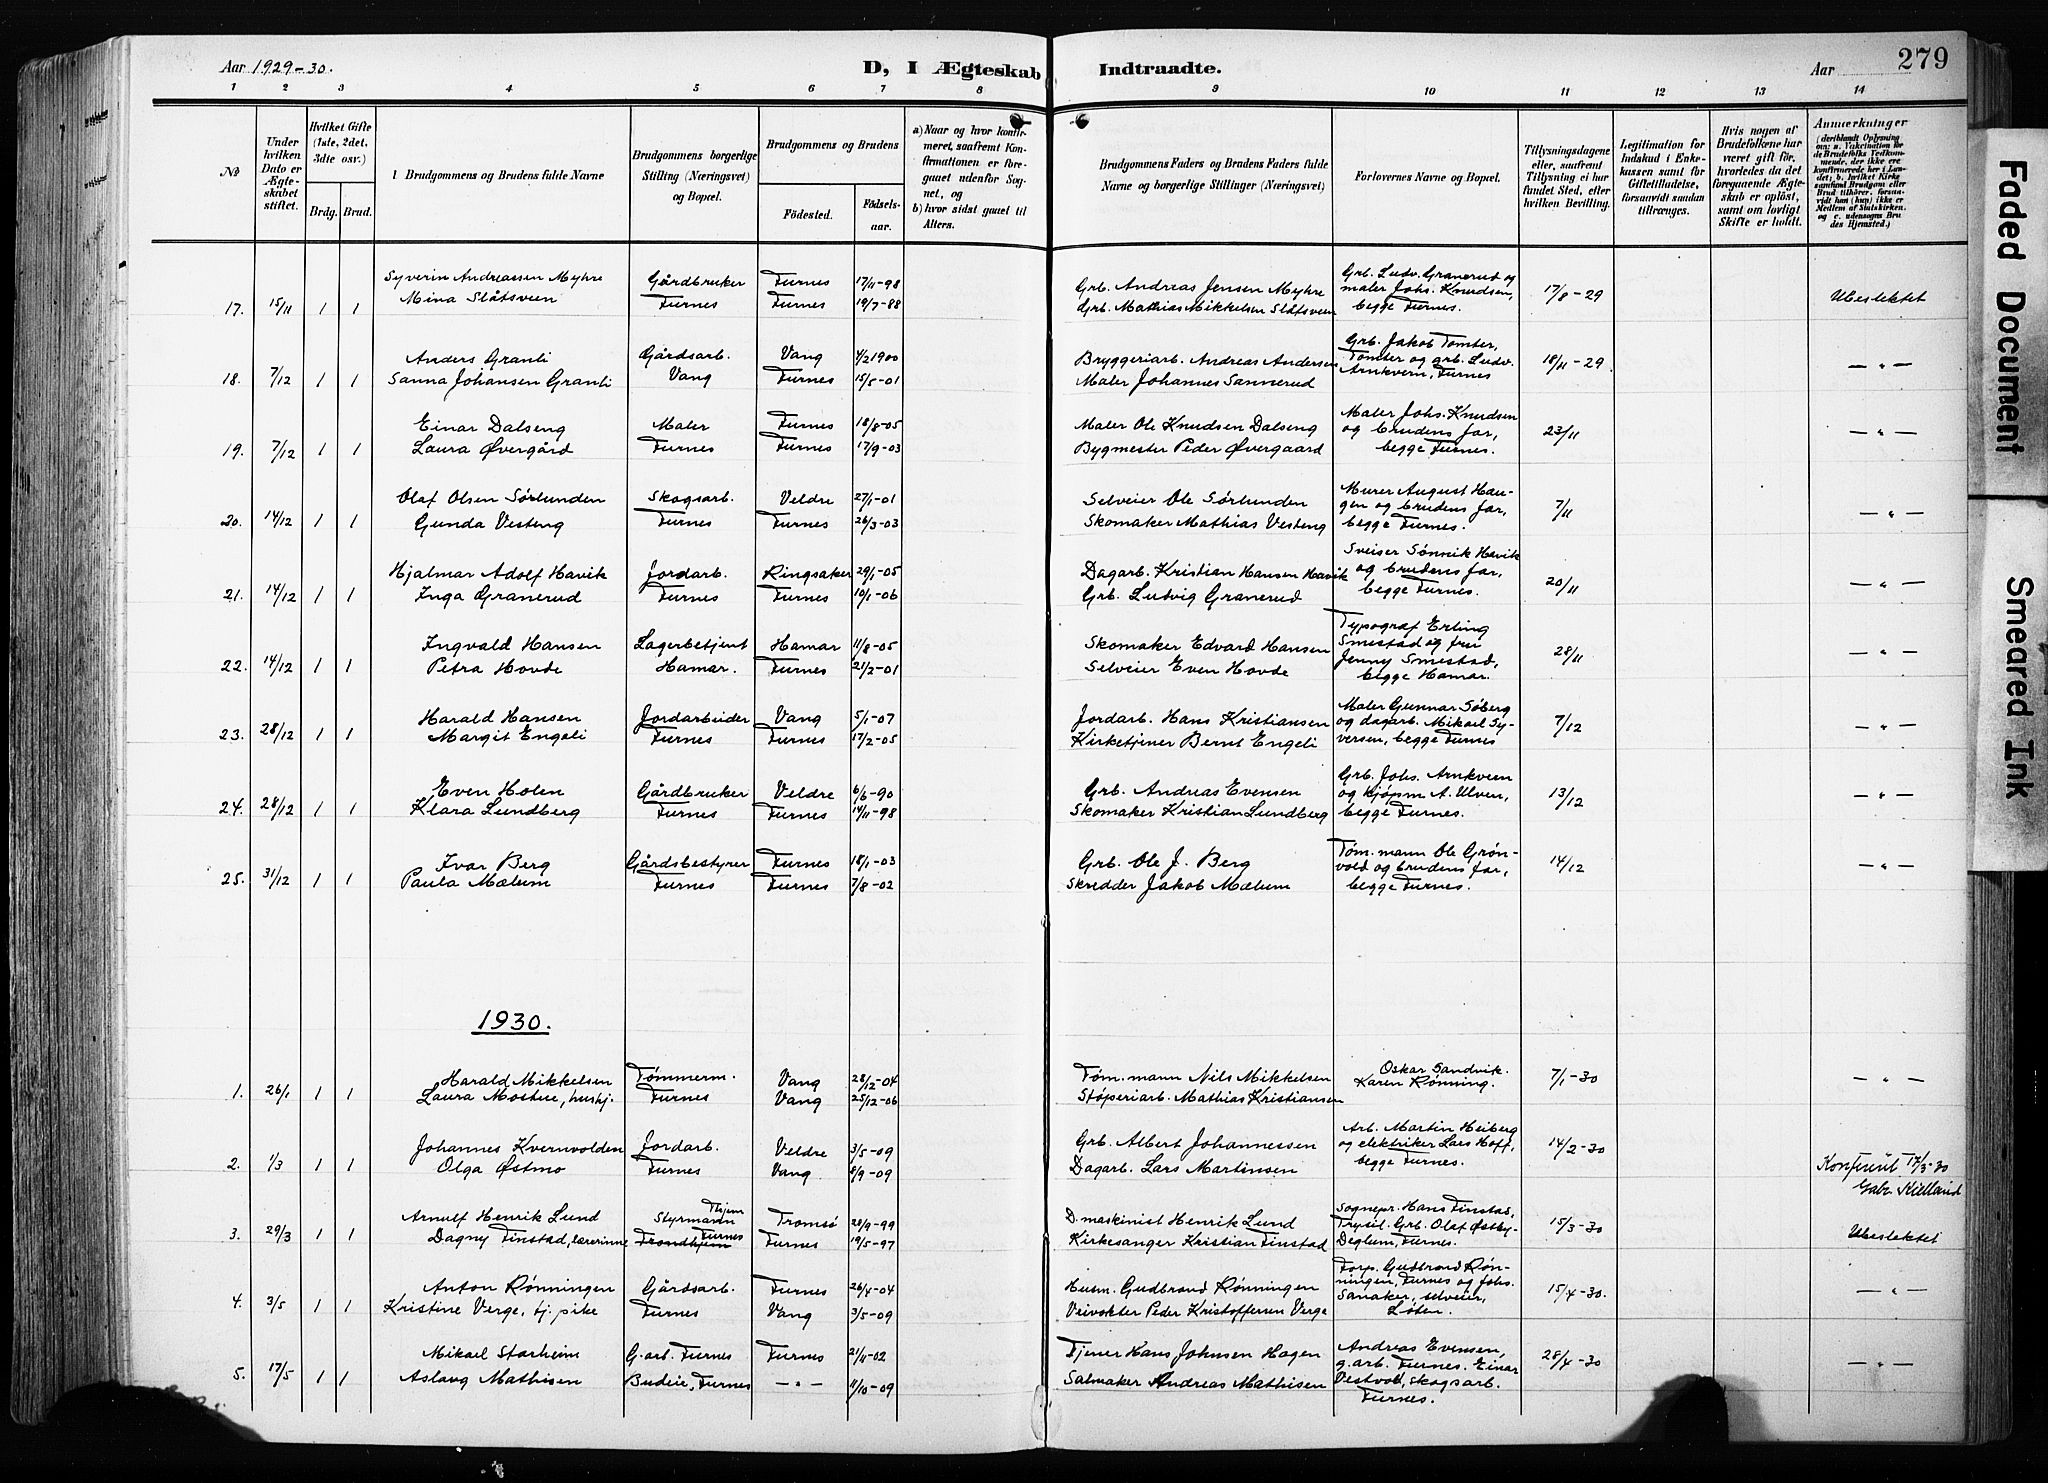 Aar 1929-30.
D, I Ægteskab Indtraadte.
Aar
279
1 2 3 4 5 6 7 8 9 10 11 12 13 14
№
Under hvilken Dato er Ægteskabet stiftet.
Hvilket Gifte (1ste, 2det, 3die osv.)
Brdg. Brud.
Brudgommens og Brudens fulde Navne
Brudgommens borgerlige Stilling (Næringsvei) og Bopæl.
Brudgommens og Brudens
Fødested.
Fødsels-aar.
a) Naar og hvor konfirmeret, saafremt Konfirmationen er foregaaet udenfor Sognet, og
b) hvor sidst gaaet til Alters.
Brudgommens Faders og Brudens Faders fulde Navne og borgerlige Stillinger (Næringsvei)
Forlovernes Navne og Bopæl.
Tillysningsdagene eller, saafremt Tillysning ei har fundet Sted, efter hvilken Bevilling.
Legitimation for Indskud i Enkekassen samt for Giftetilladelse, forsaavidt saadan tiltrænges.
Hvis nogen af Brudefolkene har været gift før, hvorledes da det foregaaende Ægteskab er opløst, samt om lovligt Skifte er holdt.
Anmærkninger
(deriblandt Oplysning om: a. Vakcination for de Brudefolks Vedkommende, der ikke ere konfirmerede her i Landet; b. hvilket Kirkesamfund Brudgom eller Brud tilhører, forsaavidt han (hun) ikke er Medlem af Statskirken, og c. udensogns Brudes Hjemsted.)
17. 15/11 1 1 Syverin Andreassen Myhre Gårdbruker Furnes 17/11-98 Grb. Andreas Jensen Myhre Grb. Ludv. Granerud og 17/8-29 Ubeslektet
Mina Slåtsveen Furnes Furnes 19/7-88 Grb. Mathias Mikkelsen Slåtsveen maler Johs. Knudsen, begge Furnes.
18. 7/12 1 1 Anders Granli Gårdsarb. Vang 4/2 1900 Bryggeriarb. Andreas Andersen Grb. Jakob Tomter, 18/11-29 — " —
Sanna Johansen Granli Vang Furnes 15/5-01 Maler Johannes Sannerud Tomter og grb. Ludv. Arnkvern, Furnes
19. 7/12 1 1 Einar Dalseng Maler Furnes 18/8-05 Maler Ole Knudsen Dalseng Maler Johs. Knudsen 23/11 — " —
Laura Øvergård Furnes Furnes 17/9-03 Bygmester Peder Øvergaard og brudens far, begge Furnes.
20. 14/12 1 1 Olaf Olsen Sørlunden Skogsarb. Veldre 27/1-01 Selveier Ole Sørlunden Murer August Hau- 7/11 — " —
Gunda Vesteng Furnes Furnes 26/3-03 Skomaker Mathias Vesteng gen og brudens far, begge Furnes.
21. 14/12 1 1 Hjalmar Adolf Havik Jordarb. Ringsaker 29/1-05 Dagarb. Kristian Hansen Havik Sveiser Sønnik Havik 20/11 — " —
Inga Granerud Furnes Furnes 10/1-06 Grb. Ludvig Granerud og brudens far, begge Furnes.
22. 14/12 1 1 Ingvald Hansen Lagerbetjent Hamar 11/8-05 Skomaker Edvard Hansen Typograf Erling 28/11 — " —
Petra Hovde Hamar. Furnes 21/2-01 Selveier Even Hovde Smestad og fru Jenny Smestad, begge Hamar.
23. 28/12 1 1 Harald Hansen Jordarbeider Vang 5/1-07 Jordarb. Hans Kristiansen Maler Gunnar Søberg 7/12 — " —
Margit Engeli Furnes Furnes 17/2-05 Kirketjener Bernt Engeli og dagarb. Mikael Syversen, begge Furnes
24. 28/12 1 1 Even Holen Gårdbruker Veldre 6/6-90 Grb. Andreas Evensen Grb. Johs. Arnkvern 13/12 — " —
Klara Lundberg Furnes Furnes 14/11-98 Skomaker Kristian Lundberg og kjøpm. A. Ulven, begge Furnes.
25. 31/12 1 1 Ivar Berg Gårdsbestyrer Furnes 18/1-03 Grb. Ole J. Berg Tøm. mann Ole Grøn- 14/12 — " —
Paula Mælum Furnes Furnes 7/8-02 Skredder Jakob Mælum vold og brudens far, begge Furnes.
1930.
1. 26/1 1 1 Harald Mikkelsen Tømmerm. Vang 28/12-04 Tøm. mann Nils Mikkelsen Oskar Sandvik. 7/1-30 — " —
Laura Mostue, hushj. Furnes Vang 25/12-06 Støperiarb. Mathias Kristiansen Karen Rønning.
2. 1/3 1 1 Johannes Kvernvolden Jordarb. Veldre 3/5-09 Grb. Albert Johannessen Arb. Martin Heiberg 14/2-30
Olga Østmo Furnes Vang 8/9-09 Dagarb. Lars Martinsen og elektriker Lars Hoff, begge Furnes. Konferert 17/3-30
Gabr. Kielland
3. 29/3 1 1 Arnulf Henrik Lund Styrmann Tromsø 28/9-99 D. maskinist Henrik Lund Sognepr. Hans Finstad, 15/3-30 Ubeslektet
Dagny Finstad, lærerinne Trondhjem Furnes Furnes 19/5-97 Kirkesanger Kristian Finstad Trysil. Grb. Olaf Østby-Deglum, Furnes.
4. 3/5 1 1 Anton Rønningen Gårdsarb. Furnes 26/4-04 Husm. Gudbrand Rønningen Forp. Gudbrand Røn- 15/4-30. — " —
Kristine Verge, tj. pike Furnes Vang 3/5-09 Veivokter Peder Kristoffersen Verge ningen, Furnes og Johs. Sanaker, selveier, Løten.
5. 17/5 1 1 Mikael Starheim G.arb. Furnes Furnes 21/11-02 Tjener Hans Johnsen Hagen Andreas Evensen, 28/4-30 — " —
Aslaug Mathisen Budeie, Furnes — " — 11/10-09 Salmaker Andreas Mathisen g.arb. Furnes. Einar Vestvold, skogsarb. Furnes.
Faded Document
Smeared Ink